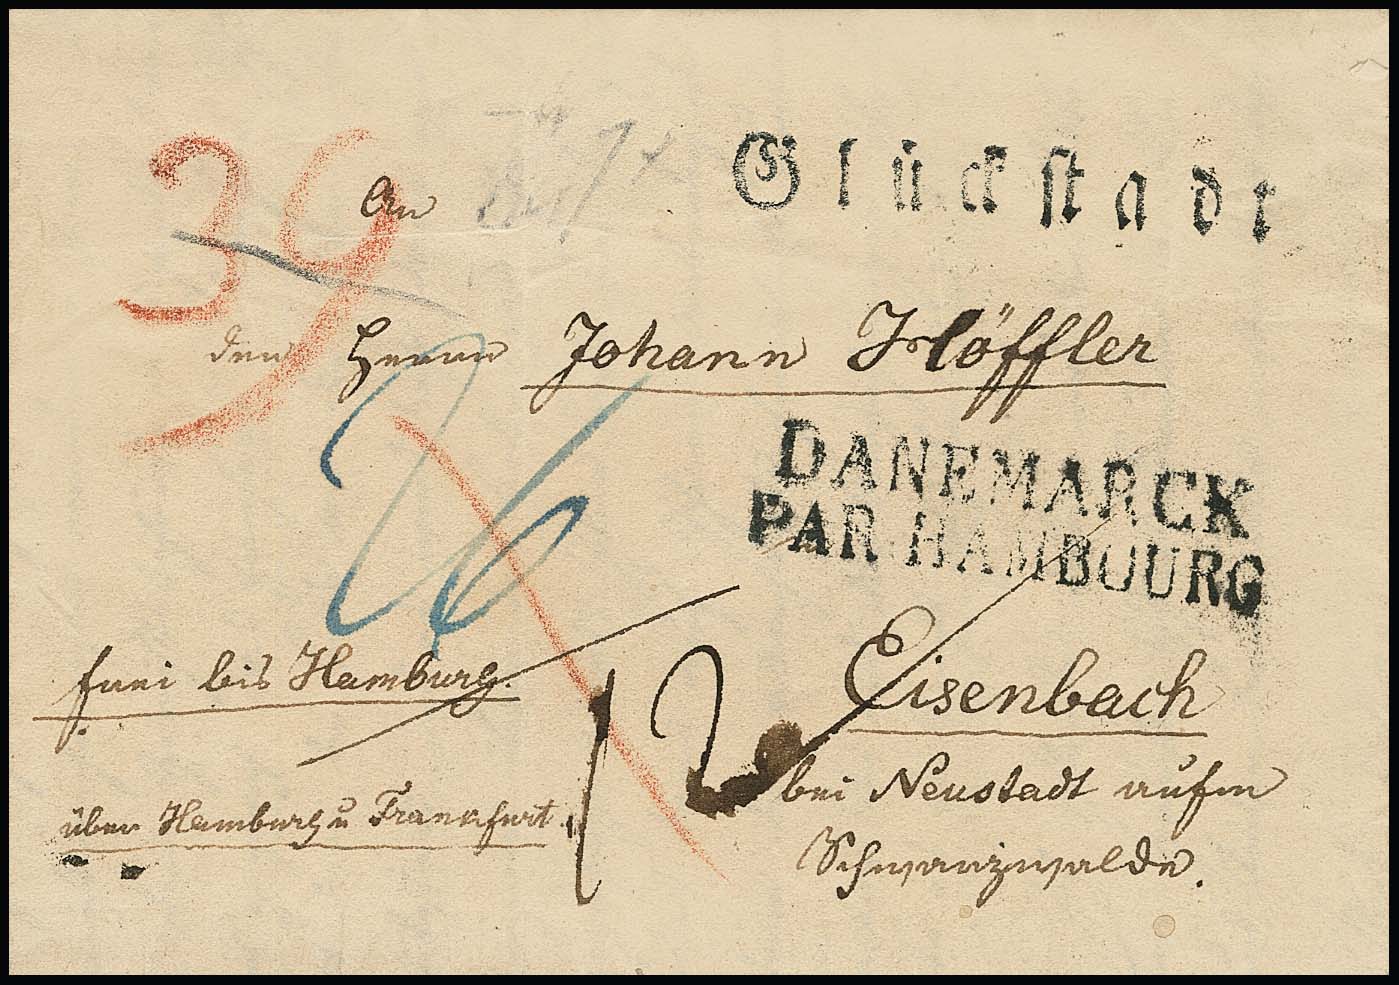 Glückstadt
39
An
den Herrn Johann Höffler
26
DANEMARCK
PAR HAMBOURG
frei bis Hamburg.
12
Eisenbach
bei Neustadt aufm
Schwarzwalde.
über Hamburg u Frankfurt.